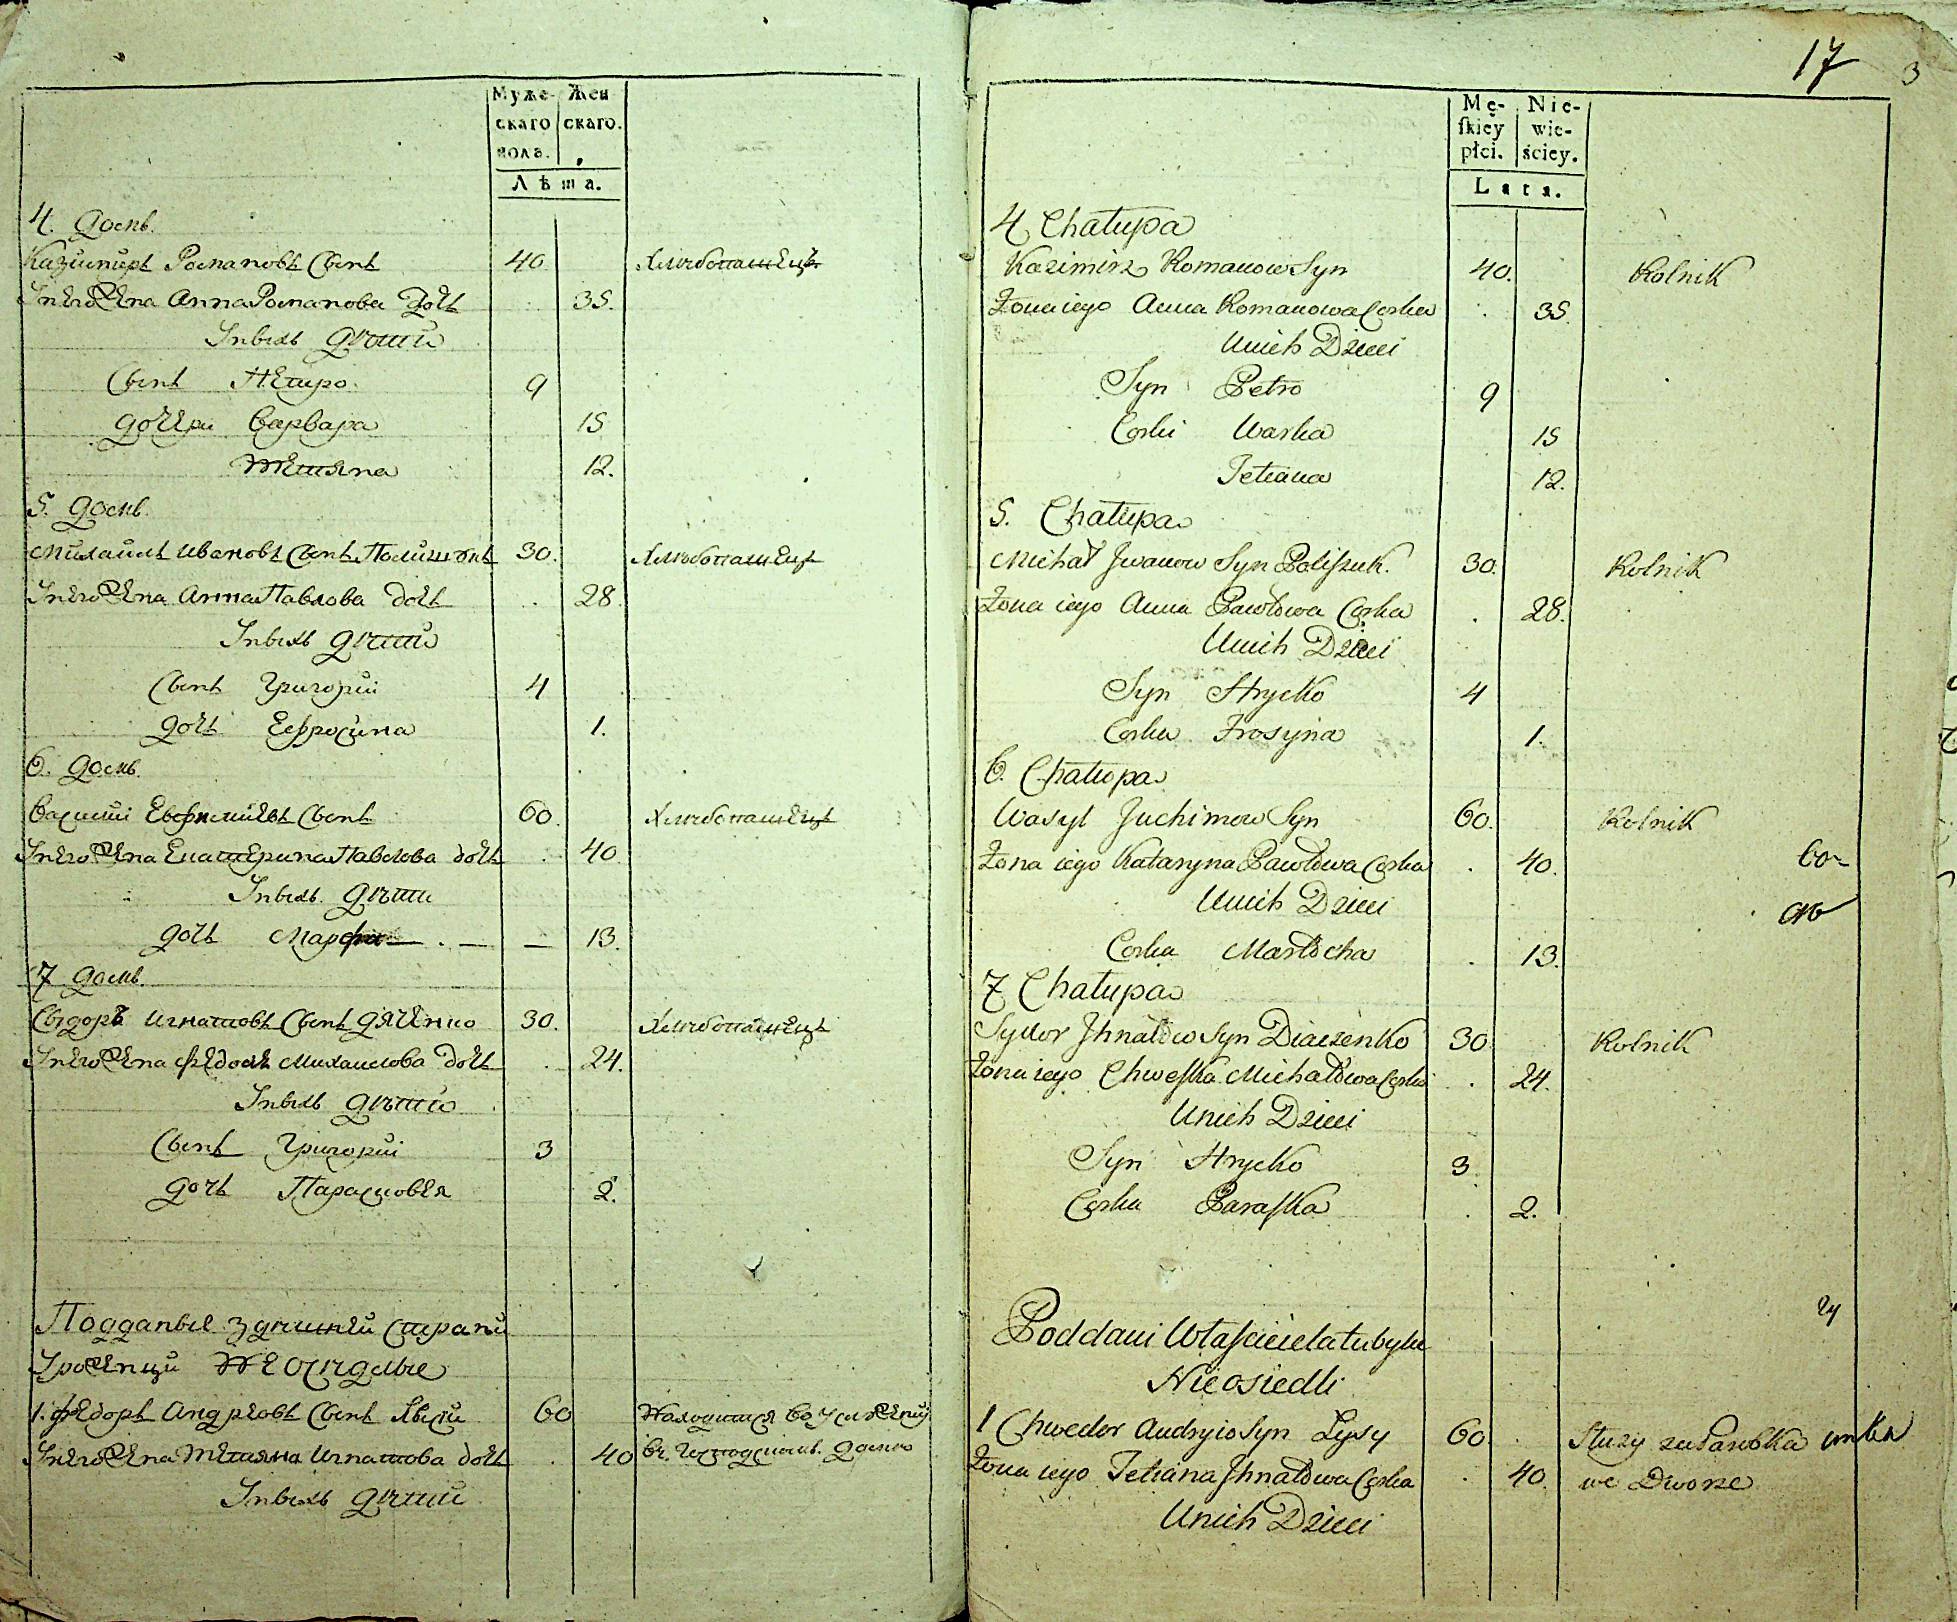 Муже-
скаго
пола.
Жен
скаго.
Лѣта.
4. домъ.
Казимиръ Романовъ Сынъ 40 Хлѣбопашецъ
У него жена Анна Романова дочь 35.
У нихъ дѣти
Сынъ Петро. 9
дочери Варвара 15
Тетяна 12.
5. домъ.
Михаилъ Ивановъ Сынъ 30. Хлѣбопашецъ
У него жена Анна Павлова дочь 28.
У нихъ дѣти
Сынъ Григорій 4
дочь Ефросина 1.
6. домъ.
Василій Евфиміевъ Сынъ 60. Хлѣбопашецъ
У него жена Екатерина Павлова дочь 40
У нихъ дѣти
дочь Марфа — 13.
7 домъ.
Сыдоръ Игнатовъ Сынъ Дяченко 30. Хлѣбопашецъ
У него жена Федося Михаилова дочь 24.
У нихъ дѣти
Сынъ Григорій 3
дочь Парасковея 2.
Подданые здѣшней страны
Уроженци Неосѣдлые
1. Федоръ Андреовъ Сынъ Лысый 60 Находится во услуженіи
У него жена Тетяна Игнатова дочь 40 въ Господскомъ домѣ
У нихъ дѣти
17
3
Mę-
ſkiey
płci.
Nie-
wie-
ściey.
Lata.
4 Chałupa
Kazimirz Romanow Syn 40. Rolnik
Żona iego Anna Romanowa Corka 35.
U nich Dzieci
Syn Petro 9
Corki Warka 15
Tetiana 12.
5. Chałupa
Michał Jwanow Syn Poliſzuk. 30. Rolnik
Żona iego Anna Pawłowa Corka 28.
U nich Dzieci
Syn Hrycko 4
Corka Frosyna 1.
6. Chałupa
Wasyl Juchimow Syn 60. Rolnik
Żona iego Kataryna Pawłowa Corka 40.
U nich Dzieci
Corka Martocha 13.
7 Chałupa
Sydor Jhnatow Syn Diaczenko 30. Rolnik
Żona iego Chweſka Michałowa Corka 24.
U nich Dzieci
Syn Hrycko 3.
Corka Paraſka 2.
Poddani Właſciciela tubylce
Nieosiedli
1 Chwedor Andryio Syn Łysy 60. Służy za Parobka
Żona iego Tetiana Jhnatowa Corka 40. we Dworze
U nich Dzieci